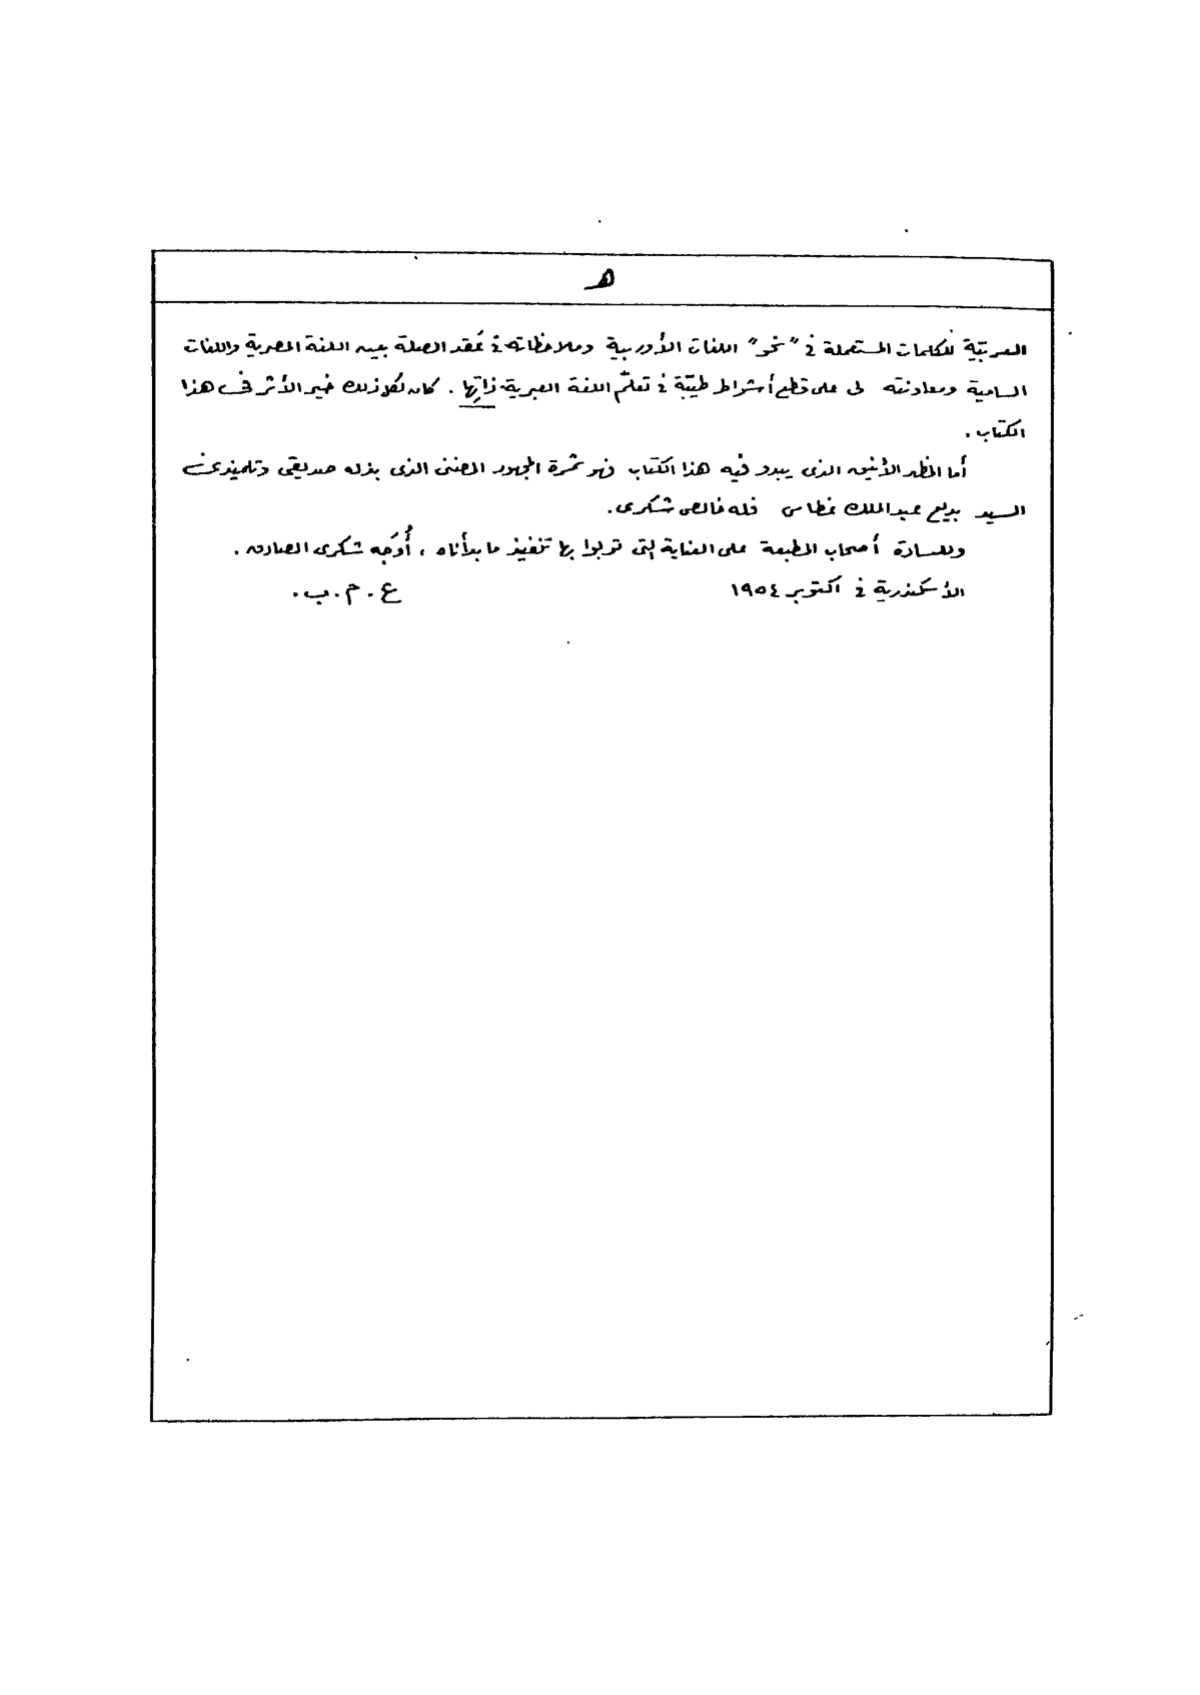 هـ
العربيّة للكلمات المستعملة فى "نحو" اللغات الأوربية وملاحظاته فى عَقد الصلة بين اللغة المصرية واللغات
السامية ومعاونته لى على قطع أشواط طيّبة فى تعلّم اللغة المصرية ذاتِها . كان لكل ذلك خير الأثر فى هذا
الكتاب .
أما المظهر الأنيق الذى يبدو فيه هذا الكتاب فهو ثمرة المجهود المضنى الذى بذله صديقى وتلميذى
السيد بديع عبد الملك غطاس فله خالص شكرى .
وللسادة أصحاب المطبعة على العناية التى تولوا بها تنفيذ ما بدأناه ، أُوَجه شكرى الصادق .
الأسكندرية فى أكتوبر ١٩٥٤ ع . م . ب .